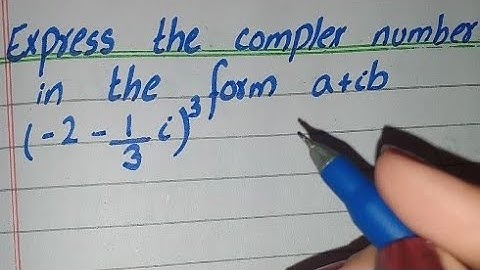 Express the compler number
in the form a+ib
(-2 - 1/3 i)³